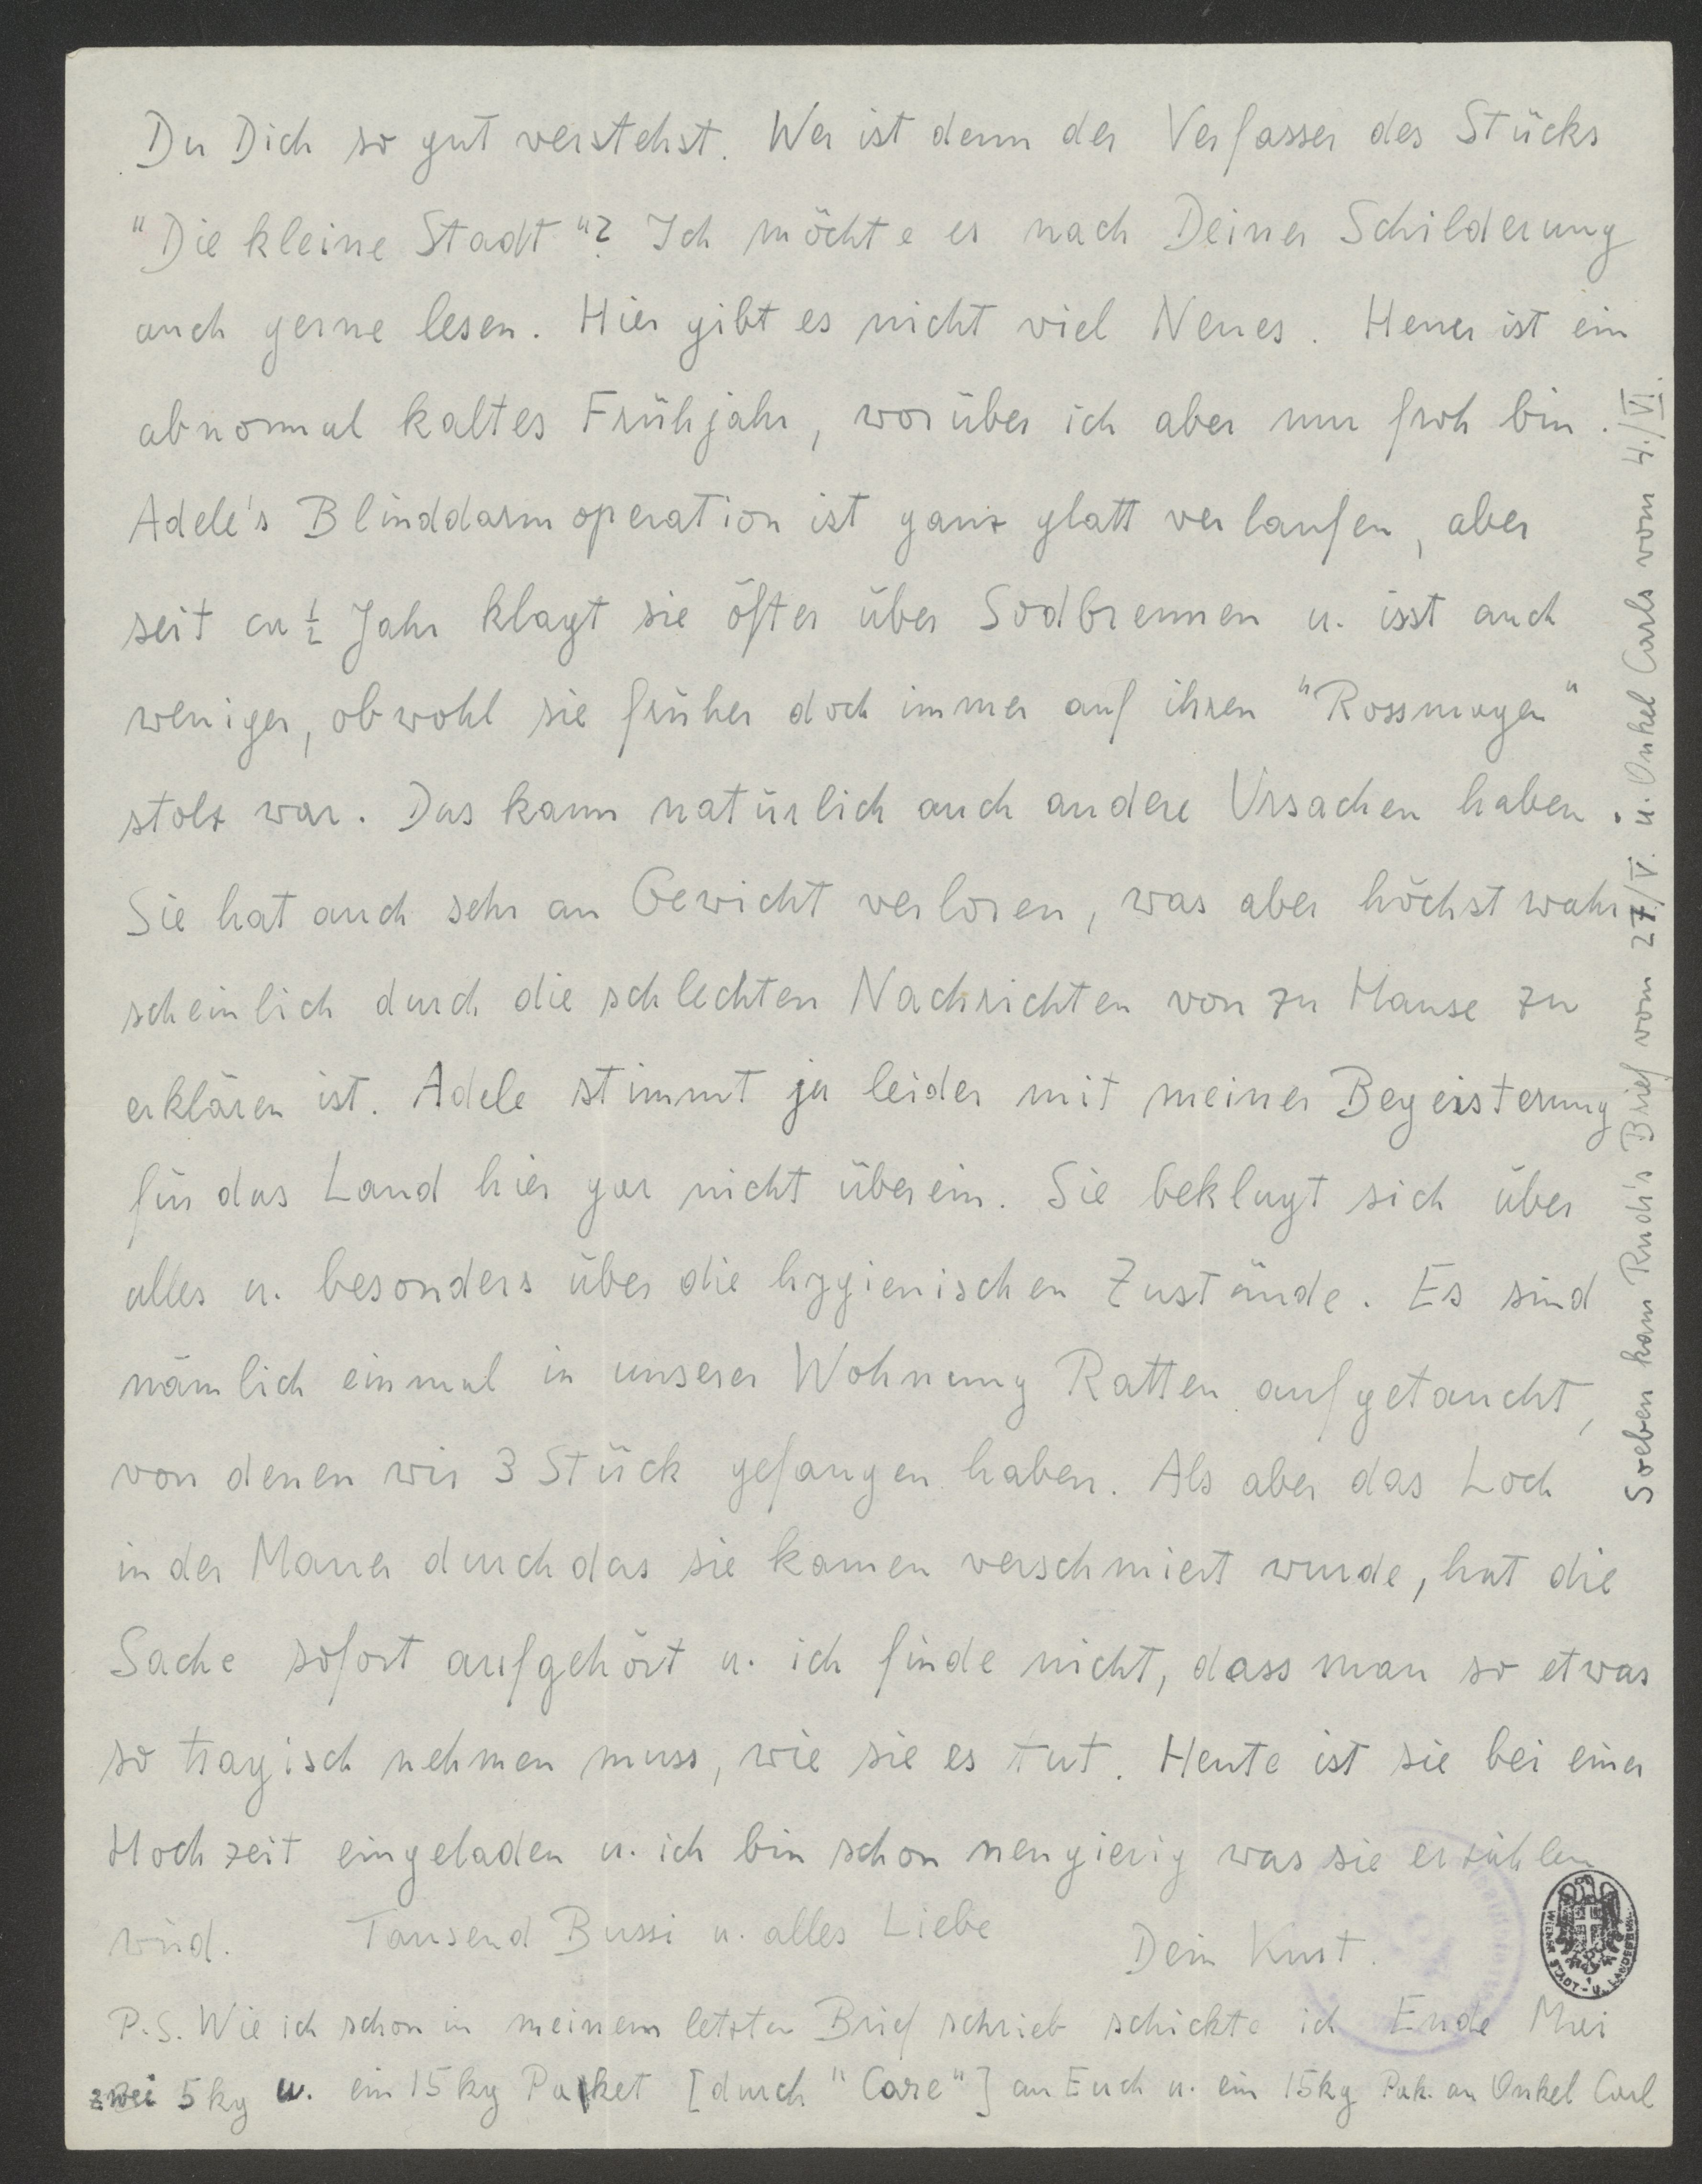 Du Dich so gut verstehst. Wer ist denn der Verfasser des Stücks
"Die kleine Stadt"? Ich möchte es nach Deiner Schilderung
auch gerne lesen. Hier gibt es nicht viel Neues. Heuer ist ein
abnormal kaltes Frühjahr, worüber ich aber nur froh bin.
Adele's Blinddarmoperation ist ganz glatt verlaufen, aber
seit ca ½ Jahr klagt sie öfter über Sodbrennen u. isst auch
weniger, obwohl sie früher doch immer auf ihren "Rossmagen"
stolz war. Das kann natürlich auch andere Ursachen haben.
Sie hat auch sehr an Gewicht verloren, was aber höchst wahr
scheinlich durch die schlechten Nachrichten von zu Hause zu
erklären ist. Adele stimmt ja leider mit meiner Begeisterung
für das Land hier gar nicht überein. Sie beklagt sich über
alles u. besonders über die hygienischen Zustände. Es sind
nämlich einmal in unserer Wohnung Ratten aufgetaucht,
von denen wir 3 Stück gefangen haben. Als aber das Loch
in der Mauer durch das sie kamen verschmiert wurde, hat die
Sache sofort aufgehört u. ich finde nicht, dass man so etwas
so tragisch nehmen muss, wie sie es tut. Heute ist sie bei einer
Hochzeit eingeladen u. ich bin schon neugierig was sie erzählen
wird. Tausend Bussi u. alles Liebe Dein Kurt.
P.S. Wie ich schon in meinem letzten Brief schrieb schickte ich Ende Mai
zwei 5kg u. ein 15kg Paket [durch "Care"] an Euch u. ein 15kg Pak. an Onkel Carl
Soeben kam Rudi's Brief vom 27./V. u. Onkel Carls vom 4./VI.
WIENER STADT- U. LANDESBIBL.